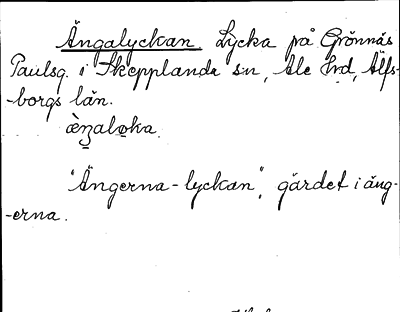 Ängalyckan. Lycka på Grönnäs
Paulsg. i Skepplanda sn, Ale hd, Älfs-
-borgs län.
æ̀ŋaløka.
"Ängerna-lyckan", gärdet i äng-
-erna.